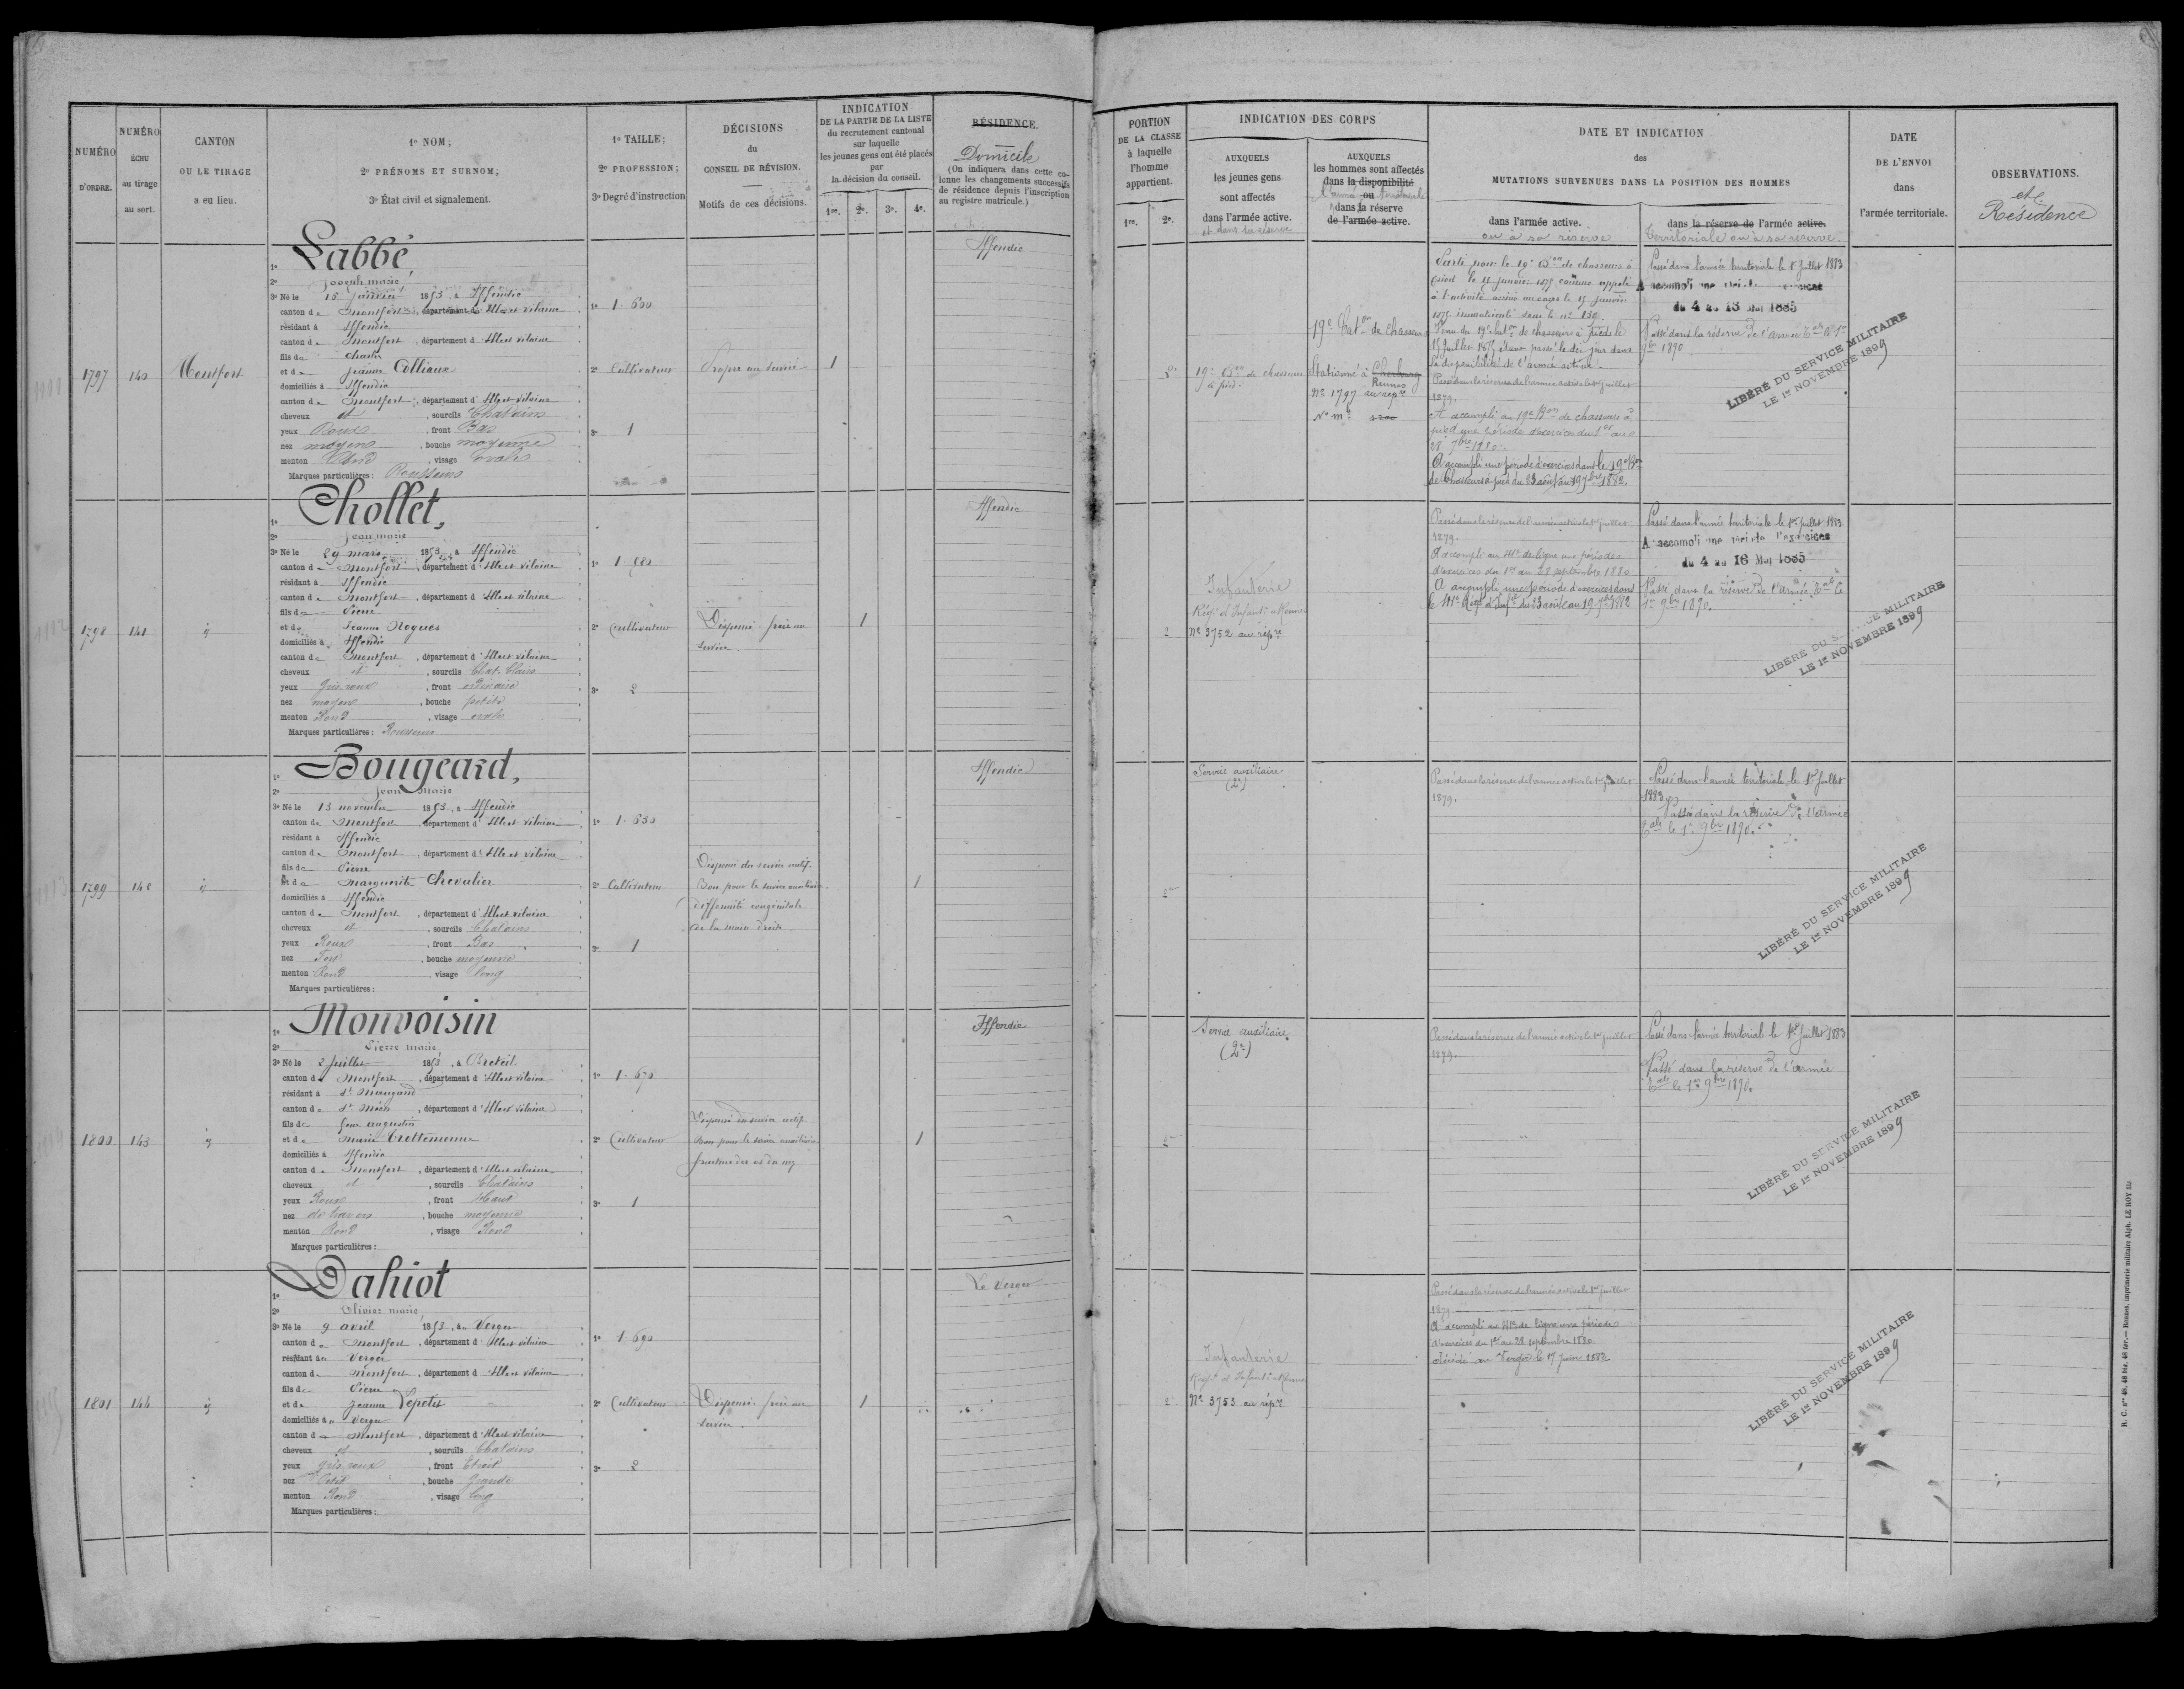 NUMÉRO D'ORDRE.
NUMÉRO ÉCHU au tirage au sort.
CANTON OU LE TIRAGE a eu lieu.
1o NOM;
2o PRÉNOMS ET SURNOM;
3o État civil et signalement.
1o TAILLE;
2o PROFESSION;
3o Degré d'instruction
DÉCISIONS du CONSEIL DE RÉVISION.
Motifs de ces décisions.
INDICATION DE LA PARTIE DE LA LISTE du recrutement cantonal sur laquelle les jeunes gens ont été placés par la décision du conseil.
1re. 2e. 3e. 4e.
RÉSIDENCE.
Domicile
(On indiquera dans cette colonne les changements successifs de résidence depuis l'inscription au registre matricule.)
PORTION DE LA CLASSE à laquelle l'homme appartient.
1re. 2e.
INDICATION DES CORPS
AUXQUELS les jeunes gens sont affectés dans l'armée active.
et dans sa réserve
AUXQUELS les hommes sont affectés dans la disponibilité ou dans la réserve de l'armée active.
DATE ET INDICATION des MUTATIONS SURVENUES DANS LA POSITION DES HOMMES
dans l'armée active.
ou à sa réserve
dans la réserve de l'armée active.
territoriale ou à sa réserve.
DATE DE L'ENVOI dans l'armée territoriale.
OBSERVATIONS.
et Résidence
1797
140
Montfort
1o Labbé,
2o Joseph marie
3o Né le 15 Janvier 1853, à Iffendic
canton de Montfort, département d'Ille et vilaine
résidant à Iffendic
canton de Montfort, département d'Ille et vilaine
fils de Charles
et de Jeanne Colliaux
domiciliés à Iffendic
canton de Montfort, département d'Ille et vilaine
cheveux et, sourcils Chatains
yeux Roux, front Bas
nez moyen, bouche moyenne
menton Rond, visage Ovale
Marques particulières: Rousseurs
1o 1.600
2o Cultivateur
3o 1
Propre au service
1
Iffendic
2e
19e Bon de chasseurs à pied.
19e Baton de chasseurs
Stationné à Cherbourg
Rennes
No 1797 au répre
No mle 1200
Parti pour le 19e Bon de chasseurs à
pied le 15 janvier 1875 comme appelé
à l'activité arrivé au corps le 15 janvier
1875 immatriculé sous le no 130.
Venu du 19e baton de chasseurs à pied le
15 Juillet 1875 étant passé le dit jour dans
la disponibilité de l'armée active.
Passé dans la réserve de l'armée active le 1er juillet
1879.
A accompli au 19e Bon de chasseurs à
pied une période d'exercices du 1er au
28 7bre 1880.
A accompli une période d'exercices dans le 19e Bon
de Chasseurs à pied du 23 août au 19 7bre 1882.
Passé dans l'armée territoriale le 1er Juillet 1883
A accompli une période d'exercices
du 4 au 16 Mai 1885
Passé dans la réserve de l'armée Tale le 1er
9bre 1890
LIBÉRÉ DU SERVICE MILITAIRE
LE 1er NOVEMBRE 1899
1798
141
id
1o Chollet,
2o Jean marie
3o Né le 29 mars 1853, à Iffendic
canton de Montfort, département d'Ille et vilaine
résidant à Iffendic
canton de Montfort, département d'Ille et vilaine
fils de Pierre
et de Jeanne Nogues
domiciliés à Iffendic
canton de Montfort, département d'Ille et vilaine
cheveux et, sourcils Chat. Clairs
yeux Gris roux, front ordinaire
nez moyen, bouche petite
menton Rond, visage ovale
Marques particulières: Rousseurs
1o 1.680
2o Cultivateur
3o 2
Dispensé frère au
service
1
Iffendic
2
Infanterie
Régt d'Infantie Rennes
No 3752 au répre
Passé dans la réserve de l'armée active le 1er juillet
1879.
A accompli au 41e de ligne une période
d'exercices du 1er au 28 septembre 1880
A accompli une période d'exercices dans
le 41e Régt d'Infie du 23 août au 19 7bre 1882
Passé dans l'armée territoriale le 1er Juillet 1883
A accompli une période d'exercices
du 4 au 16 Mai 1885
Passé dans la réserve de l'armée Tale le
1er 9bre 1890.
LIBÉRÉ DU SERVICE MILITAIRE
LE 1er NOVEMBRE 1899
1799
142
id
1o Bougeard,
2o Jean Marie
3o Né le 13 novembre 1853, à Iffendic
canton de Montfort, département d'Ille et vilaine
résidant à Iffendic
canton de Montfort, département d'Ille et vilaine
fils de Pierre
et de Marguerite Chevalier
domiciliés à Iffendic
canton de Montfort, département d'Ille et vilaine
cheveux et, sourcils Chatains
yeux Roux, front Bas
nez Fort, bouche moyenne
menton Rond, visage long
Marques particulières:
1o 1.630
2o Cultivateur
3o 1
Dispensé du service actif.
Bon pour le service auxiliaire
difformité congénitale
de la main droite.
1
Iffendic
2e
Service auxiliaire
(2e)
Passé dans la réserve de l'armée active le 1er juillet
1879.
Passé dans l'armée territoriale le 1er Juillet
1883
Passé dans la réserve de l'armée
Tale le 1er 9bre 1890.
LIBÉRÉ DU SERVICE MILITAIRE
LE 1er NOVEMBRE 1899
1800
143
id
1o Monvoisin
2o Pierre marie
3o Né le 2 Juillet 1853, à Breteil
canton de Montfort, département d'Ille et vilaine
résidant à St Maugand
canton de St Méen, département d'Ille et vilaine
fils de feu augustin
et de Marie Crottemenne
domiciliés à Iffendic
canton de Montfort, département d'Ille et vilaine
cheveux et, sourcils Chatains
yeux Roux, front Haut
nez de travers, bouche moyenne
menton Rond, visage Rond
Marques particulières:
1o 1.670
2o Cultivateur
3o 1
Dispensé du service actif.
Bon pour le service auxiliaire
fracture des os du nez
1
Iffendic
2e
Service auxiliaire
(2e)
Passé dans la réserve de l'armée active le 1er juillet
1879.
Passé dans l'armée territoriale le 1er Juillet 1883
Passé dans la réserve de l'armée
Tale le 1er 9bre 1890.
LIBÉRÉ DU SERVICE MILITAIRE
LE 1er NOVEMBRE 1899
1801
144
id
1o Dahiot
2o Olivier marie
3o Né le 9 avril 1853, au Verger
canton de Montfort, département d'Ille et vilaine
résidant au Verger
canton de Montfort, département d'Ille et vilaine
fils de Pierre
et de Jeanne Lepetit
domiciliés au Verger
canton de Montfort, département d'Ille et vilaine
cheveux et, sourcils Chatains
yeux gris roux, front Etroit
nez Petit, bouche Grande
menton Rond, visage long
Marques particulières:
1o 1.690
2o Cultivateur
3o 2
Dispensé frère au
service.
1
Le Verger
2e
Infanterie
Régt d'Infantie Rennes
No 3753 au répre
Passé dans la réserve de l'armée active le 1er juillet
1879.
A accompli au 41e de ligne une période
d'exercices du 1er au 28 septembre 1880.
Décédé au Verger le 17 juin 1882.
LIBÉRÉ DU SERVICE MILITAIRE
LE 1er NOVEMBRE 1899
R. C. nos 48, 48 bis, 48 ter.— Rennes, imprimerie militaire Alph. LE ROY fils